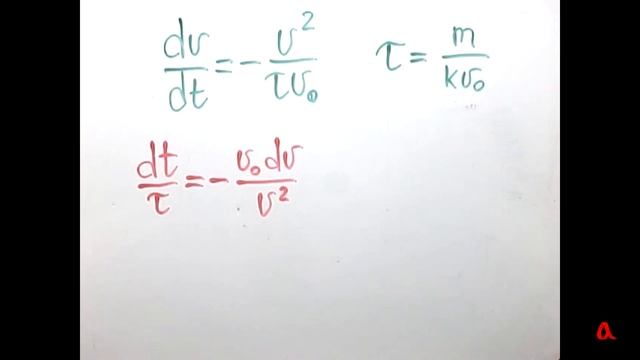 dv/dt = - v²/τv₀ τ = m/kv₀
dt/τ = - v₀ dv/v²
a